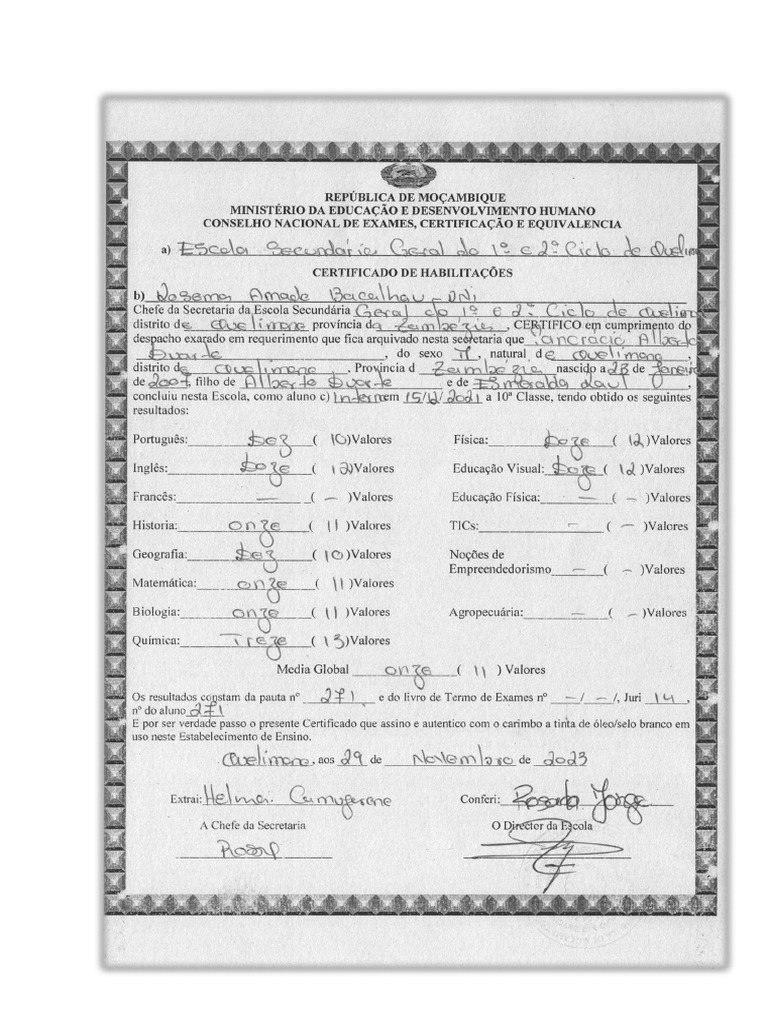 REPÚBLICA DE MOÇAMBIQUE
MINISTÉRIO DA EDUCAÇÃO E DESENVOLVIMENTO HUMANO
CONSELHO NACIONAL DE EXAMES, CERTIFICAÇÃO E EQUIVALENCIA
a) Escola Secundária Geral do 1º e 2º Ciclo de Quelimane
CERTIFICADO DE HABILITAÇÕES
b) Amade Bacalhau - DNi
Chefe da Secretaria da Escola Secundária Geral do 1º e 2º Ciclo de Quelimane
distrito de Quelimane província da Zambézia, CERTIFICO em cumprimento do
despacho exarado em requerimento que fica arquivado nesta secretaria que Pancrácio Alberto
Duarte, do sexo M, natural de Quelimane,
distrito de Quelimane. Provincia d Zambézia nascido a 23 de Janeiro
de 2007, filho de Alberto Duarte e de Esmeralda Raul,
concluiu nesta Escola, como aluno c) Interno em 15/12/2021 a 10ª Classe, tendo obtido os seguintes
resultados:
Português: Dez ( 10 )Valores Física: Doze ( 12 )Valores
Inglês: Doze ( 12 )Valores Educação Visual: Doze ( 12 )Valores
Francês: — ( - )Valores Educação Física: — ( - )Valores
Historia: onze ( 11 )Valores TICs: — ( - )Valores
Geografia: Dez ( 10 )Valores Noções de
Matemática: onze ( 11 )Valores Empreendedorismo — ( - )Valores
Biologia: onze ( 11 )Valores Agropecuária: — ( - )Valores
Química: Treze ( 13 )Valores
Media Global onze ( 11 ) Valores
Os resultados constam da pauta nº 271 e do livro de Termo de Exames nº -/-/, Juri 14,
nº do aluno 271
E por ser verdade passo o presente Certificado que assino e autentico com o carimbo a tinta de óleo/selo branco em
uso neste Estabelecimento de Ensino.
Quelimane, aos 29 de Novembro de 2023
Extrai: Helma Conferi: Rosarda Jorge
A Chefe da Secretaria O Director da Escola